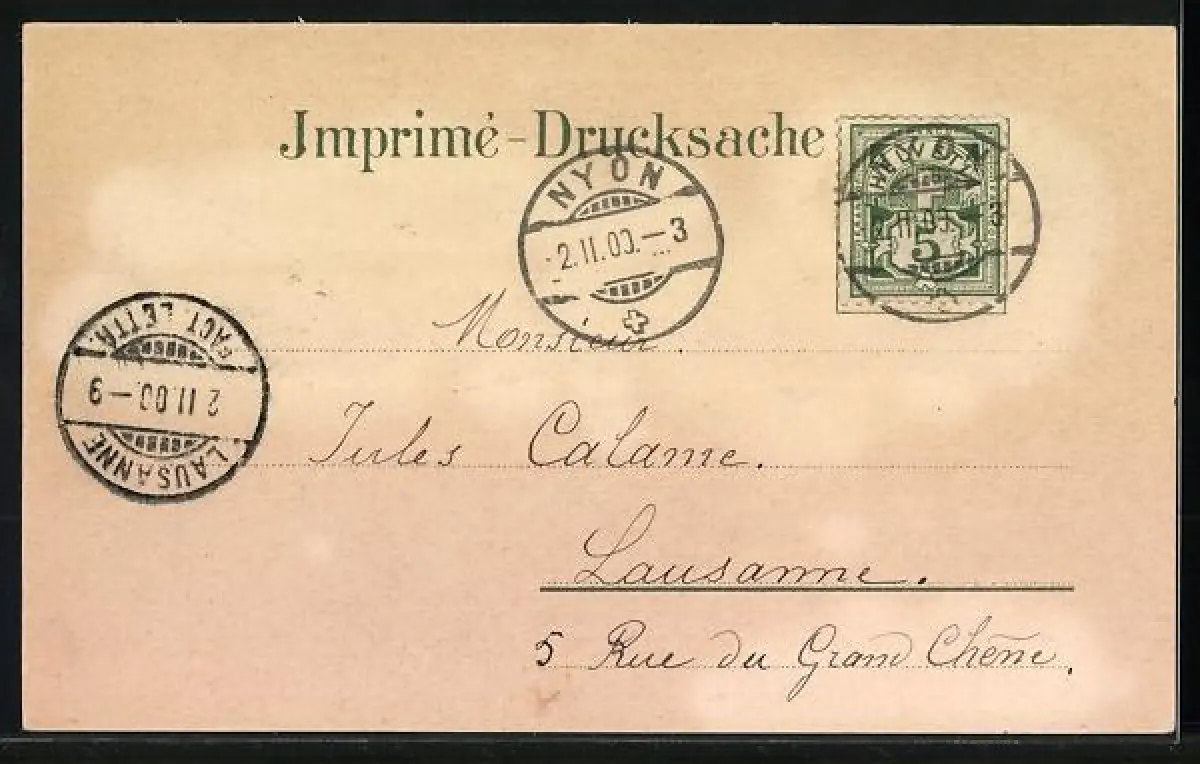 Imprimé - Drucksache
HELVETIA
5
NYON
2.II.00.–3
Monsieur.
FACT. LETTR.
2 II.00.–9
LAUSANNE
Jules Calame.
Lausanne.
5 Rue du Grand Chêne.